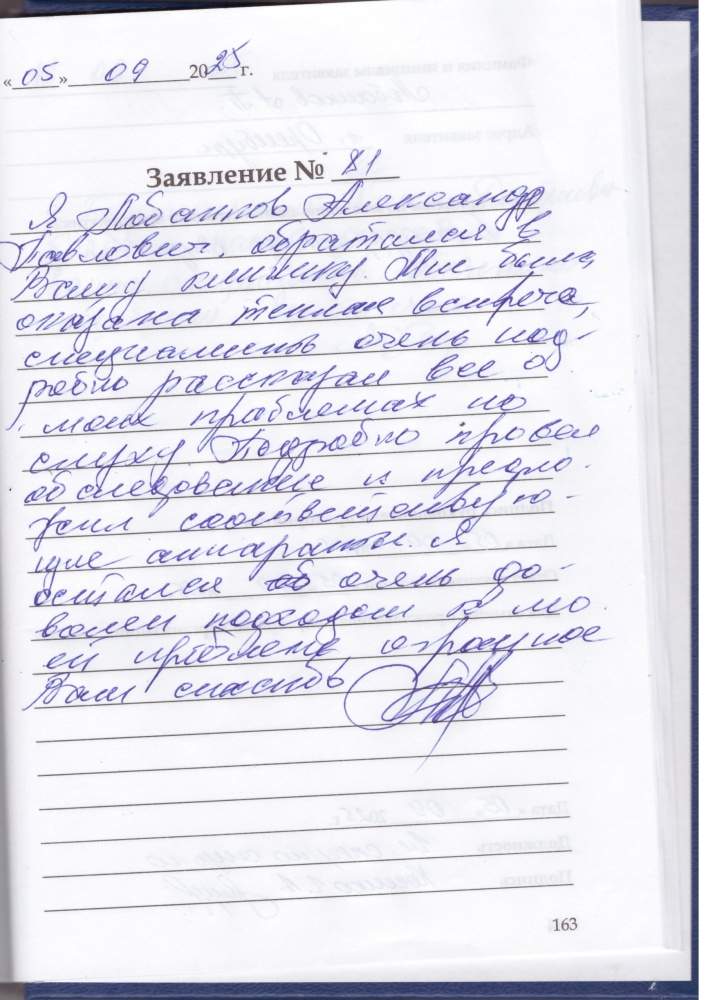 «05» 09 2025 г.
Заявление № 81
Я Лобанков Александр
Павлович, обратался в
Вашу клинику. Мне была
оказана теплая встреча,
специалист очень под-
робно рассказал все о
моих праблемах по
слуху. Подробно провел
обследование и предло-
жил соответствую-
щие аппараты. Я
остался очень до-
волен подходом к мо-
ей проблеме, огромное
Вам спасибо
163